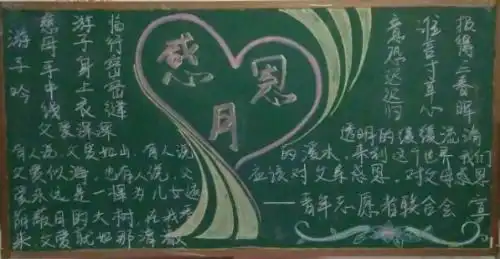 游子吟
慈母手中线
游子身上衣
临行密密缝
意恐迟迟归
谁言寸草心
报得三春晖
感恩月
父爱深深
有人说,父爱如山,有人说
父爱似海,也有人说,父
爱永远是一棵为儿女遮
阴蔽日的大树,在我看
来父爱就如那潺潺
透明的缓缓流淌
的溪水,来到这个世界,我们
应该对父亲感恩,对父母感恩
——青年志愿者联合会 宣